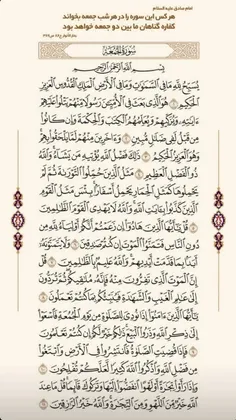 امام صادق علیه‌السلام
هر کس این سوره را در هر شب جمعه بخواند
کفاره گناهان ما بین دو جمعه خواهد بود
سورة الجمعة
بسم الله الرحمن الرحيم
يسبح لله ما في السماوات وما في الأرض الملك القدوس العزيز
الحكيم ١ هو الذي بعث في الأميين رسولا منهم يتلوا عليهم
ءاياته ويزكيهم ويعلمهم الكتاب والحكمة وإن كانوا
من قبل لفي ضلال مبين ٢ وءاخرين منهم لما يلحقوا بهم
وهو العزيز الحكيم ٣ ذلك فضل الله يؤتيه من يشاء والله
ذو الفضل العظيم ٤ مثل الذين حملوا التوراة ثم لم
يحملوها كمثل الحمار يحمل أسفارا بئس مثل القوم
الذين كذبوا بءايات الله والله لا يهدي القوم الظالمين
٥ قل يا أيها الذين هادوا إن زعمتم أنكم أولياء لله من
دون الناس فتمنوا الموت إن كنتم صادقين ٦ ولا يتمنونه
أبدا بما قدمت أيديهم والله عليم بالظالمين ٧ قل
إن الموت الذي تفرون منه فإنه ملاقيكم ثم تردون
إلى عالم الغيب والشهادة فينبئكم بما كنتم تعملون ٨
يا أيها الذين ءامنوا إذا نودي للصلاة من يوم الجمعة فاسعوا
إلى ذكر الله وذروا البيع ذلكم خير لكم إن كنتم تعلمون
٩ فإذا قضيت الصلاة فانتشروا في الأرض وابتغوا
من فضل الله واذكروا الله كثيرا لعلكم تفلحون ١٠
وإذا رأوا تجارة أو لهوا انفضوا إليها وتركوك قائما قل ما عند
الله خير من اللهو ومن التجارة والله خير الرازقين ١١